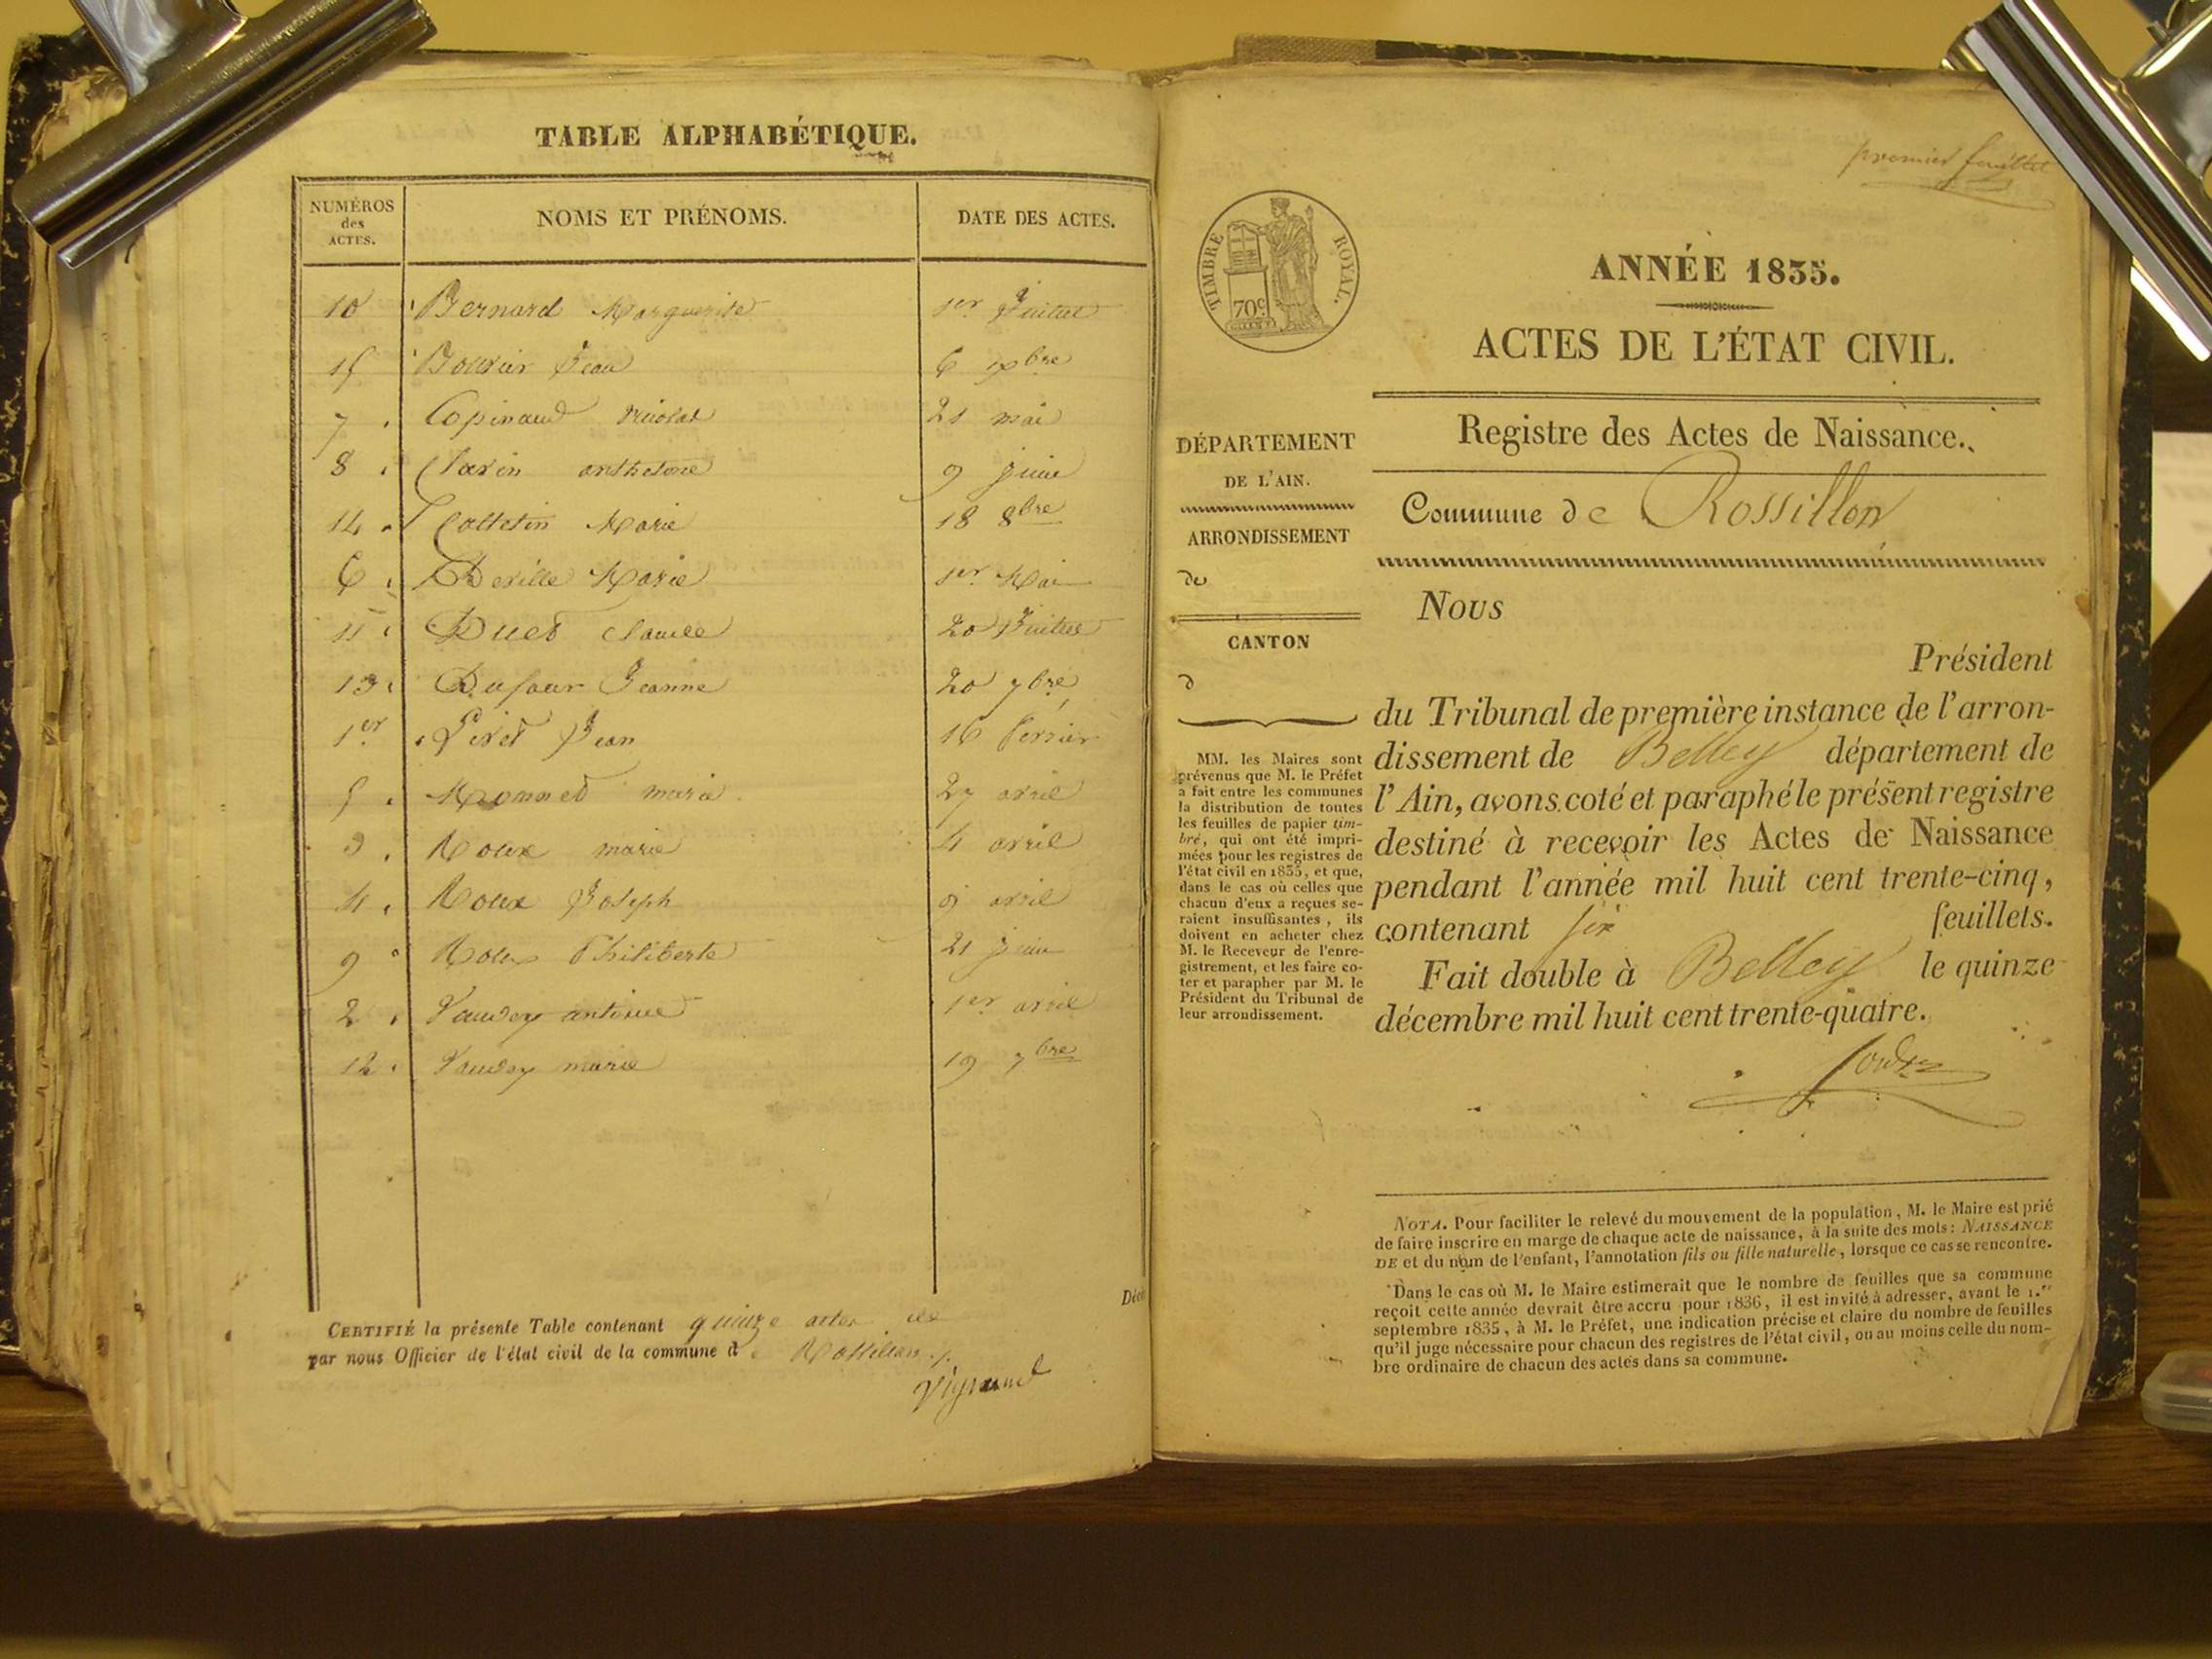 TABLE ALPHABÉTIQUE.
NUMÉROS des ACTES.
NOMS ET PRÉNOMS.
DATE DES ACTES.
10 Bernard Marguerite 1er Juillet
15 Jean 6 xbre
7 Copinaud 21 mai
8 anthelme 9 juin
14 Marie 18 8bre
6 Deville Marie 1er Mai
11 Duet Claude 20 Juillet
13 Dufour Jeanne 20 7bre
1er Jean 16 février
5 Monnet marie 27 avril
3 Roux marie 4 avril
4 Roux Joseph 9 avril
9 Roux Philiberte 21 juin
2 antoine 1er avril
12 marie 19 7bre
CERTIFIÉ la présente Table contenant quinze actes
par nous Officier de l'état civil de la commune de Rossillon
premier feuillet
TIMBRE ROYAL.
70c
ANNÉE 1835.
ACTES DE L'ÉTAT CIVIL.
Registre des Actes de Naissance.
Commune de Rossillon
DÉPARTEMENT
DE L'AIN.
ARRONDISSEMENT
de
CANTON
d
MM. les Maires sont
prévenus que M. le Préfet
a fait entre les communes
la distribution de toutes
les feuilles de papier tim-
bré, qui ont été impri-
mées pour les registres de
l'état civil en 1835, et que,
dans le cas où celles que
chacun d'eux a reçues se-
raient insuffisantes, ils
doivent en acheter chez
M. le Receveur de l'enre-
gistrement, et les faire co-
ter et parapher par M. le
Président du Tribunal de
leur arrondissement.
Nous
Président
du Tribunal de première instance de l'arron-
dissement de Belley département de
l'Ain, avons coté et paraphé le présent registre
destiné à recevoir les Actes de Naissance
pendant l'année mil huit cent trente-cinq,
contenant six feuillets.
Fait double à Belley le quinze
décembre mil huit cent trente-quatre.
NOTA. Pour faciliter le relevé du mouvement de la population, M. le Maire est prié
de faire inscrire en marge de chaque acte de naissance, à la suite des mots: NAISSANCE
DE et du nom de l'enfant, l'annotation fils ou fille naturelle, lorsque ce cas se rencontre.
Dans le cas où M. le Maire estimerait que le nombre de feuilles que sa commune
reçoit cette année devrait être accru pour 1836, il est invité à adresser, avant le 1.er
septembre 1835, à M. le Préfet, une indication précise et claire du nombre de feuilles
qu'il juge nécessaire pour chacun des registres de l'état civil, ou au moins celle du nom-
bre ordinaire de chacun des actes dans sa commune.